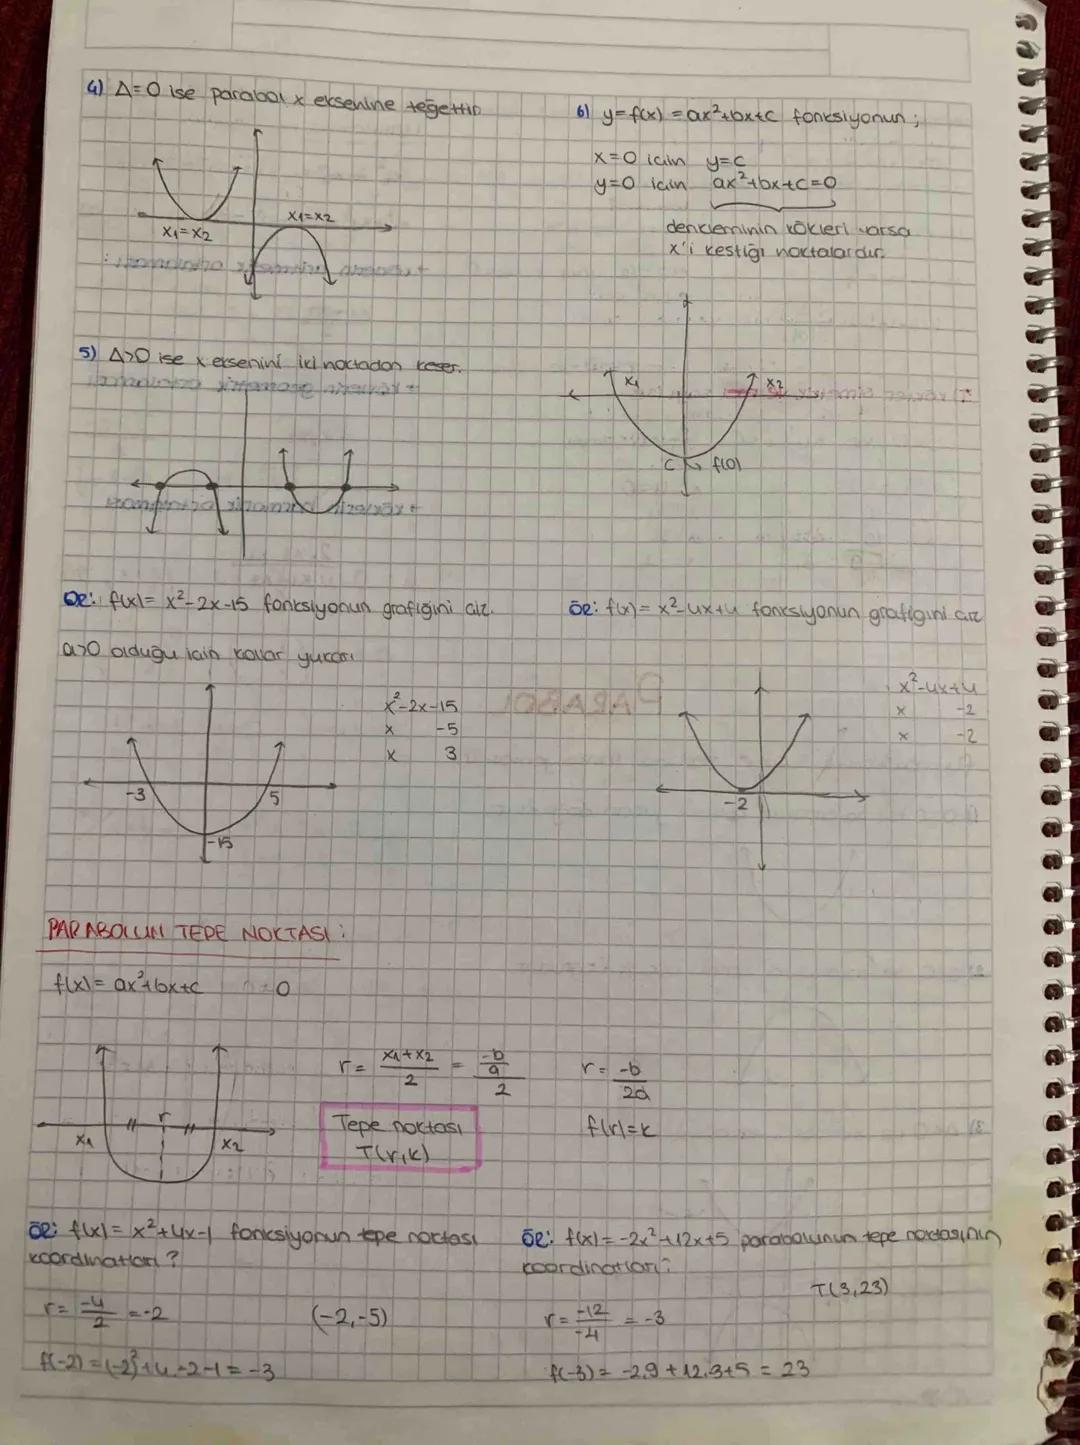 4) Δ=0 ise parabol x eksenine teğettir
x₁=x₂
x₁=x₂
5) Δ>0 ise x eksenini iki noktadan keser.
6) y=f(x) = ax²+bx+c fonksiyonun ;
x=0 için y=c
y=0 için ax²+bx+c=0
denkleminin kökleri varsa
x'i kestiği noktalardır.
x₁
x₂
c
f(0)
ÖR: f(x)= x²-2x-15 fonksiyonun grafiğini çiz.
a>0 olduğu için kollar yukarı
x²-2x-15
x -5
x 3
-3
5
-15
ÖR: f(x)= x²-4x+4 fonksiyonun grafiğini çiz
x²-4x+4
x -2
x -2
-2
PARABOL
PARABOLUN TEPE NOKTASI :
f(x)= ax²+bx+c 0
x₁
r
x₂
r= x₁+x₂/2 = -b/a/2
r= -b/2a
Tepe noktası
T(r,k)
f(r)=k
ÖR: f(x)= x²+4x-1 fonksiyonun tepe noktası
koordinatları ?
r= -4/2 =-2
(-2,-5)
f(-2) = (-2)²+4.-2-1 = -3
ÖR: f(x)= -2x²+12x+5 parabolunun tepe noktasının
koordinatları?
T(3,23)
r= -12/-4 = -3
f(-3)= -2.9+12.3+5 = 23